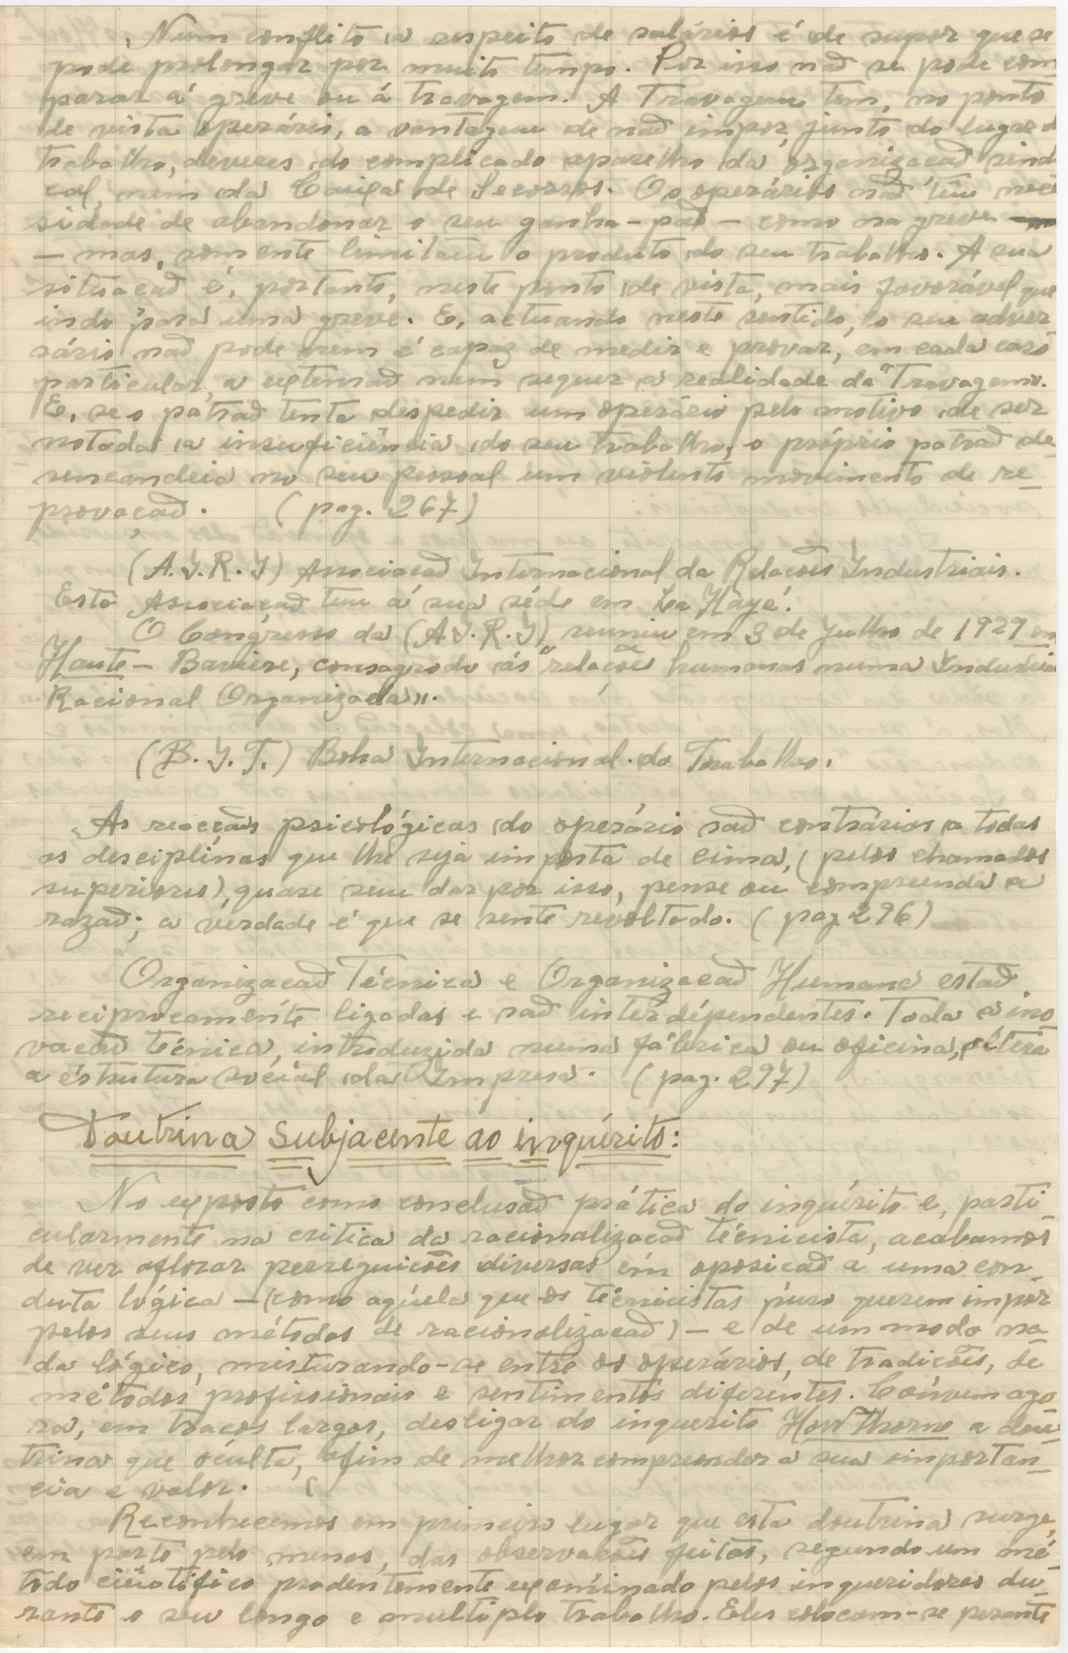 Num conflito a respeito de salários é de supor que se
pode prolongar por muito tempo. Por isso não se pode com
parar á greve ou á travagem. A Travagem tem, no ponto
de vista operário, a vantagem de não impor, junto do lugar d
trabalho, deveres do complicado aparelho da organização sind
cal, nem da Caixa de Socorros. Os operários não têm neces
sidade de abandonar o seu ganha-pão - como na greve
- mas, somente limitam o produto do seu trabalho. A sua
situação é, portanto, neste ponto de vista, mais favorável que
indo para uma greve. E, actuando neste sentido, o seu adver
sário não pode nem é capaz de medir e provar, em cada caso
particular, a extensão nem sequer a realidade da Travagem.
E, se o patrão tenta despedir um operário pelo motivo de ser
notada a insuficiência do seu trabalho, o próprio patrão de
sencandeia no seu pessoal um violento movimento de re-
provação. (pag. 267)
(A.I.R.I) Associação Internacional da Relações Industriais.
Esta Associação tem á sua séde em La Haye.
O Congresso da (A.I.R.I) reuniu em 3 de Julho de 1929 em
Haute - Baviere, consagrado ás "relações humanas numa Industria
Racional Organizada".
(B.I.T.) Bolsa Internacional do Trabalho.
As reacções psicológicas do operário são contrárias a todas
as desciplínas que lhe seja imposta de cima, (pelos chamados
superiores), quase sem dar por isso, pense ou compreenda a
razão; a verdade é que se sente revoltado. (pag 296)
Organização Técnica e Organização Humana estão
reciprocamente ligadas e são interdépendentes. Toda a ino
vação técnica, introduzida numa fábrica ou oficina, altera
a éstrutura social da Impresa. (pag. 297)
Doutrina Subjacente ao inquérito:
No exposto como conclusão prática do inquérito e, parti
cularmente na crítica da racionalização técnicista, acabamos
de ver aflorar perseguições diversas em oposição a uma con-
duta lógica - (como aquela que os técnicistas puro querem impor
pelos seus métodos de racionalização) - e de um modo na
da lógico, misturando-se entre os operários, de tradições, de
métodos profissionais e sentimentos diferentes. Convem ago
ra, em traços largos, desligar do inquerito Hawthorne a dou-
trina que oculta, afim de melhor compreender a sua importan-
cia e valor.
Reconhecemos em primeiro lugar que esta doutrina surge,
em parte pelo menos, das observações feitas, segundo um mé-
todo ciêntifico prudentemente examinado pelos inqueridores du-
rante o seu longo e multiplo trabalho. Eles colocam-se perante